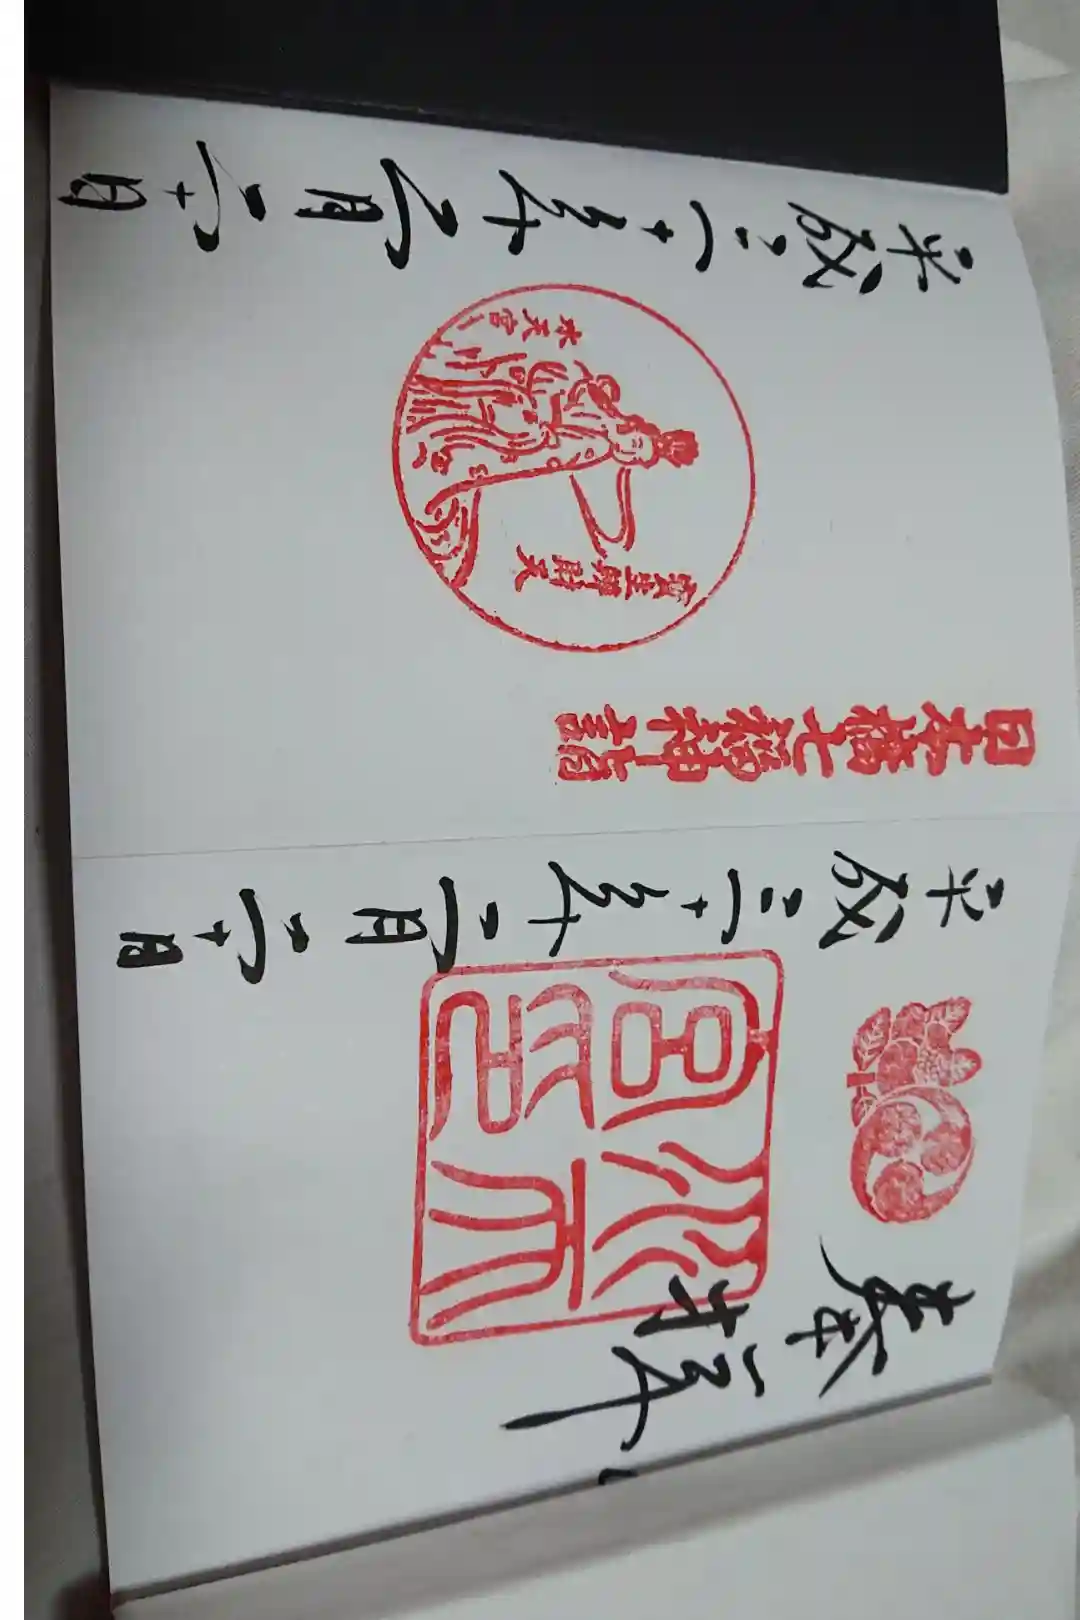 奉拝
水天宮印
平成三十年二月二十日
日本橋七福神詣
寳生辨財天
水天宮
平成三十年二月二十日